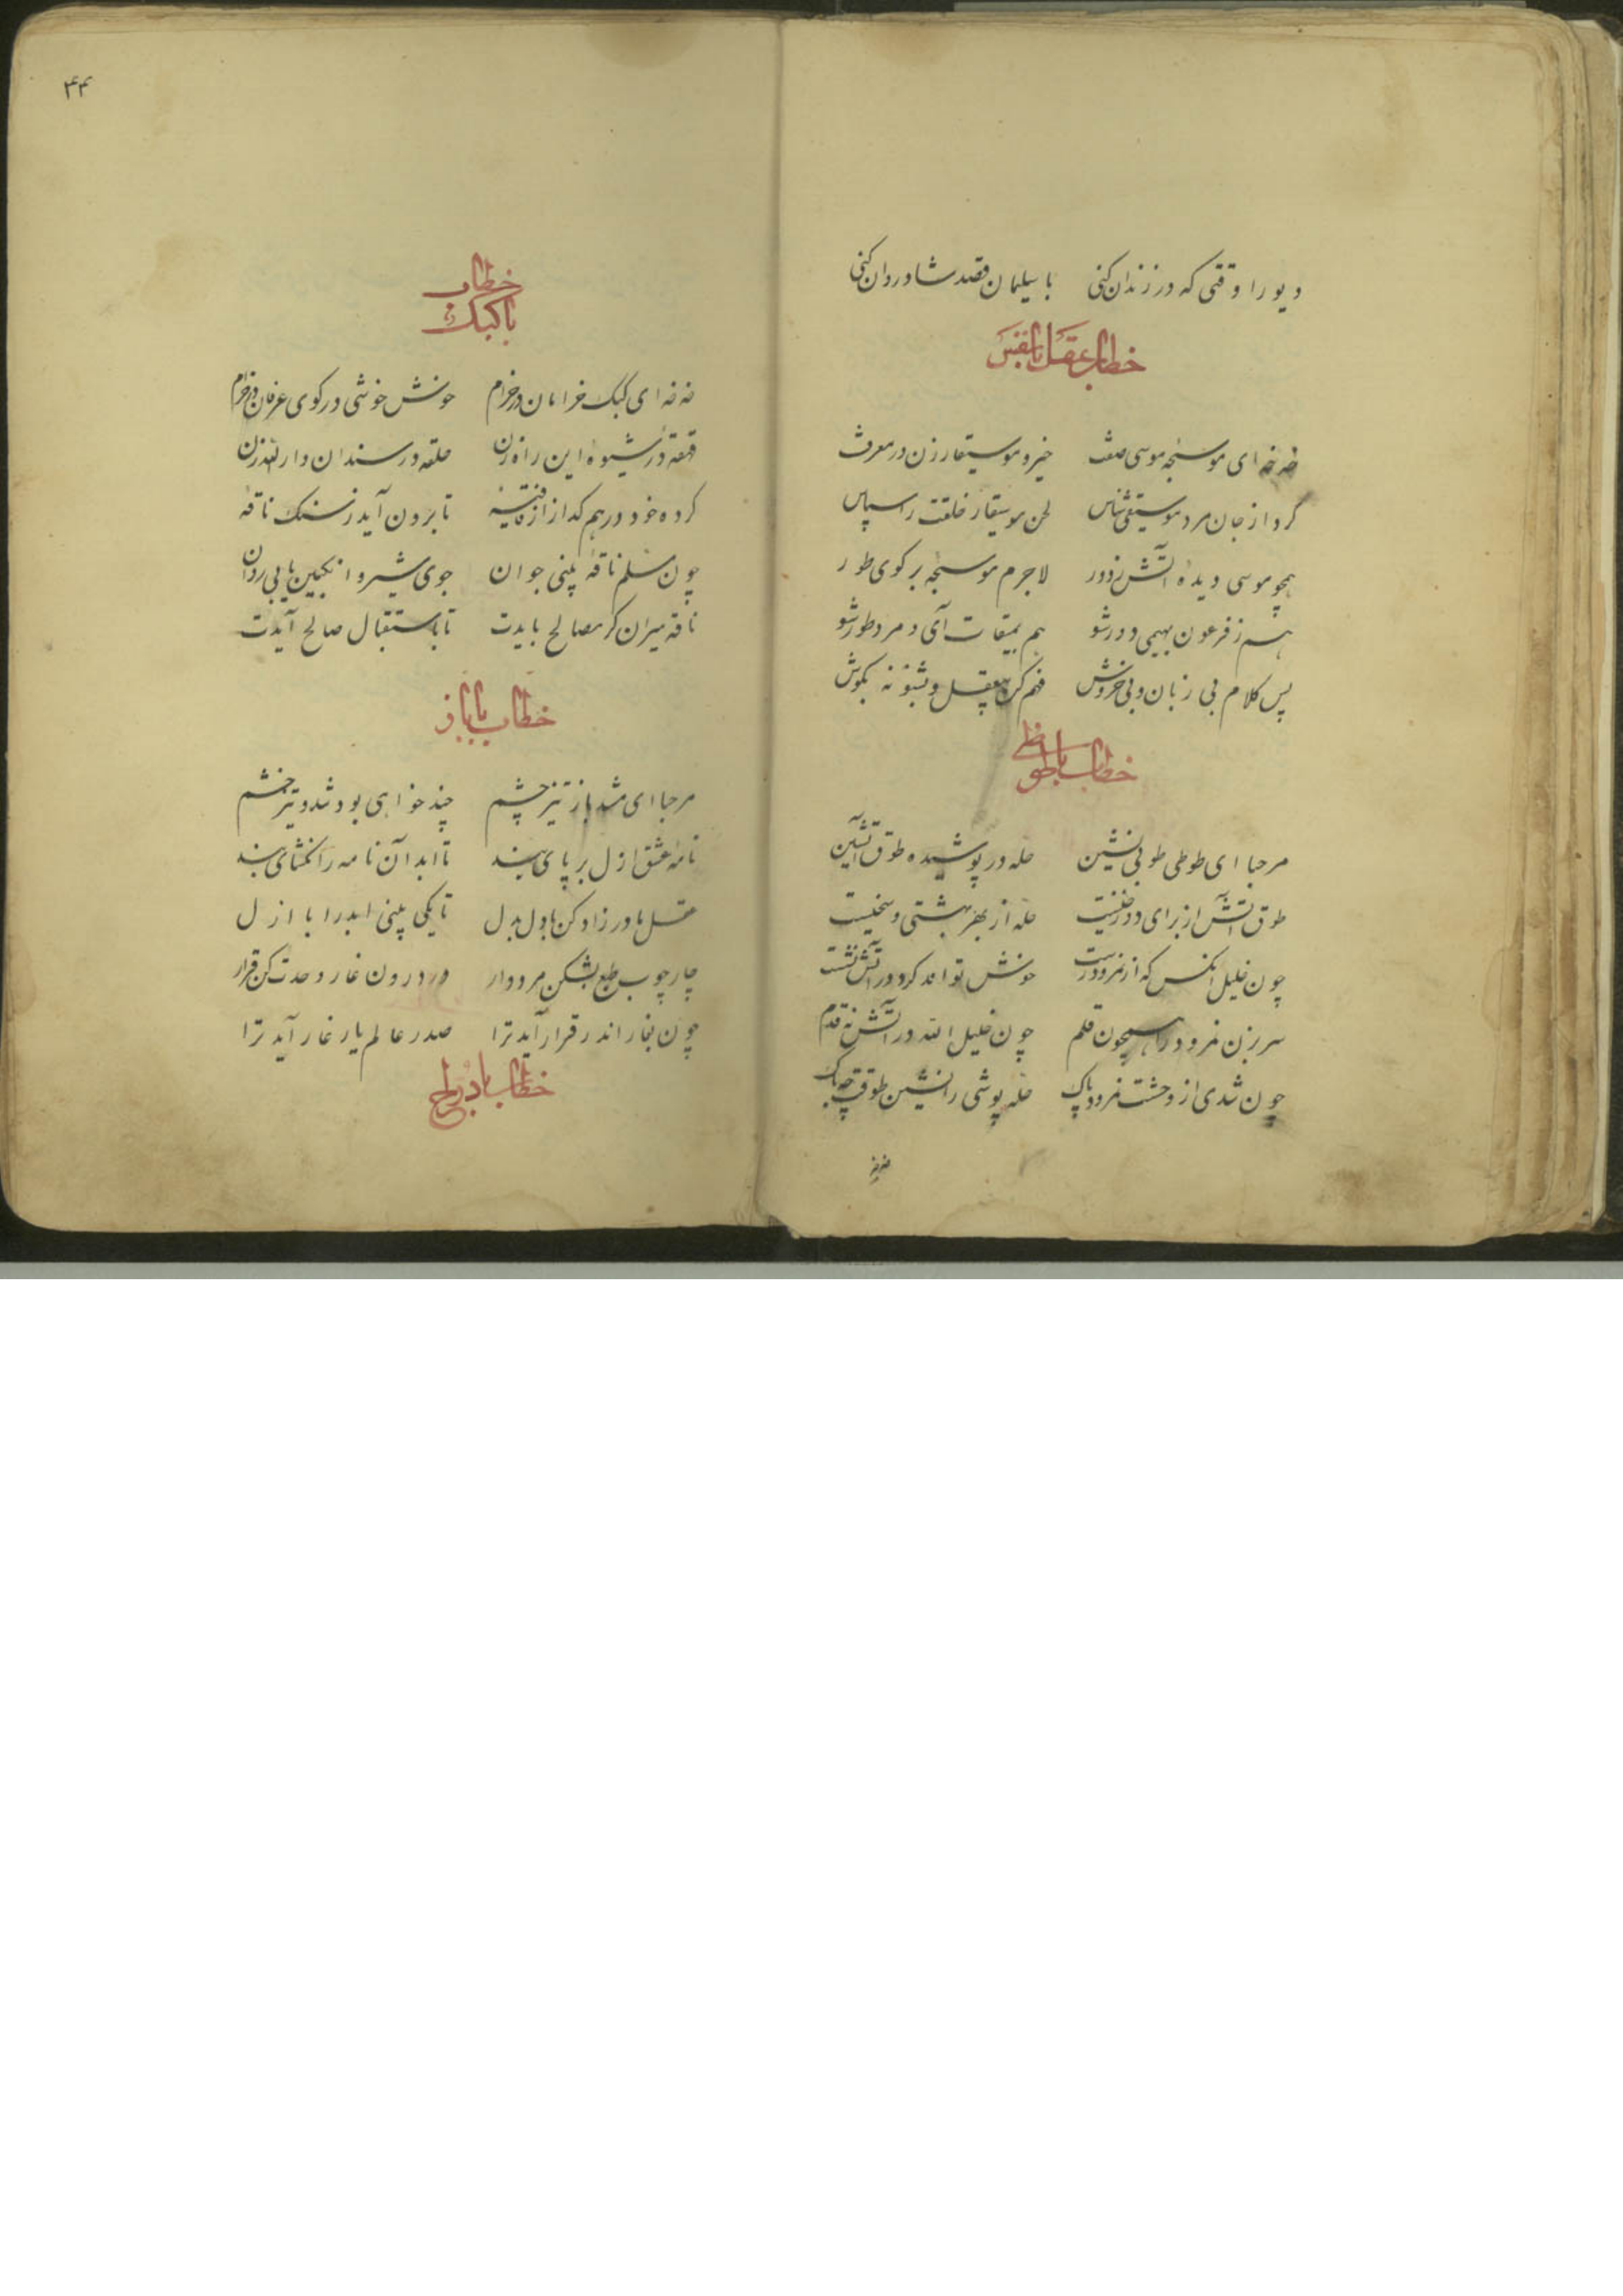 دیو را وقتی که در زندان کنی با سلیمان قصد شادروان کنی
خطاب عقل بالنفس
خه خه ای موسیچه موسی صفت خیز و موسیقار زن در معرفت
کرد از جان مرد موسیقی شناس لحن موسیقار خلقت را سپاس
همچو موسی دیدهٔ آتش ز دور لاجرم موسیچه بر کوی طور
هم ز فرعون بهیمی دور شو هم بمیقات آی و مرد طور شو
پس کلام بی زبان و بی خروش فهم کن بی عقل و بشنو نه بگوش
خطاب با طوطی
مرحبا ای طوطی طوبی نشین حله در پوشیده طوق آتشین
طوق آتش از برای دوزخیست حله از بهر بهشتی و سخیست
چون خلیل آنکس که از نمرود رست خوش تواند کرد در آتش نشست
سر بزن نمرود را همچون قلم چون خلیل الله در آتش نه قدم
چون شدی از وحشت نمرود پاک حله پوشی را نشین طوقت چه باک
۴۴
خطاب
با کبک
خه خه ای کبک خرامان در خرام خوش خوشی در کوی عرفان در خرام
قهقه در شیوهٔ این راه زن حلقه در سندان دار الله زن
کوه خود در هم گداز از فاقهٔ تا برون آید ز سنگت ناقهٔ
چون مسلم ناقهٔ بینی جوان جوی شیر و انگبین یابی روان
ناقه میران گر مصالح بایدت تا باستقبال صالح آیدت
خطاب با باز
مرحبا ای شه باز تیز چشم چند خواهی بود تند و تیز خشم
نامهٔ عشق ازل بر پای بند تا ابد آن نامه را مگشای بند
عقل مادرزاد کن با دل بدل تا یکی بینی ابد را با ازل
چار چوب طبع بشکن مردوار در درون غار وحدت کن قرار
چون بغار اندر قرار آید ترا صدر عالم یار غار آید ترا
خطاب با دراج